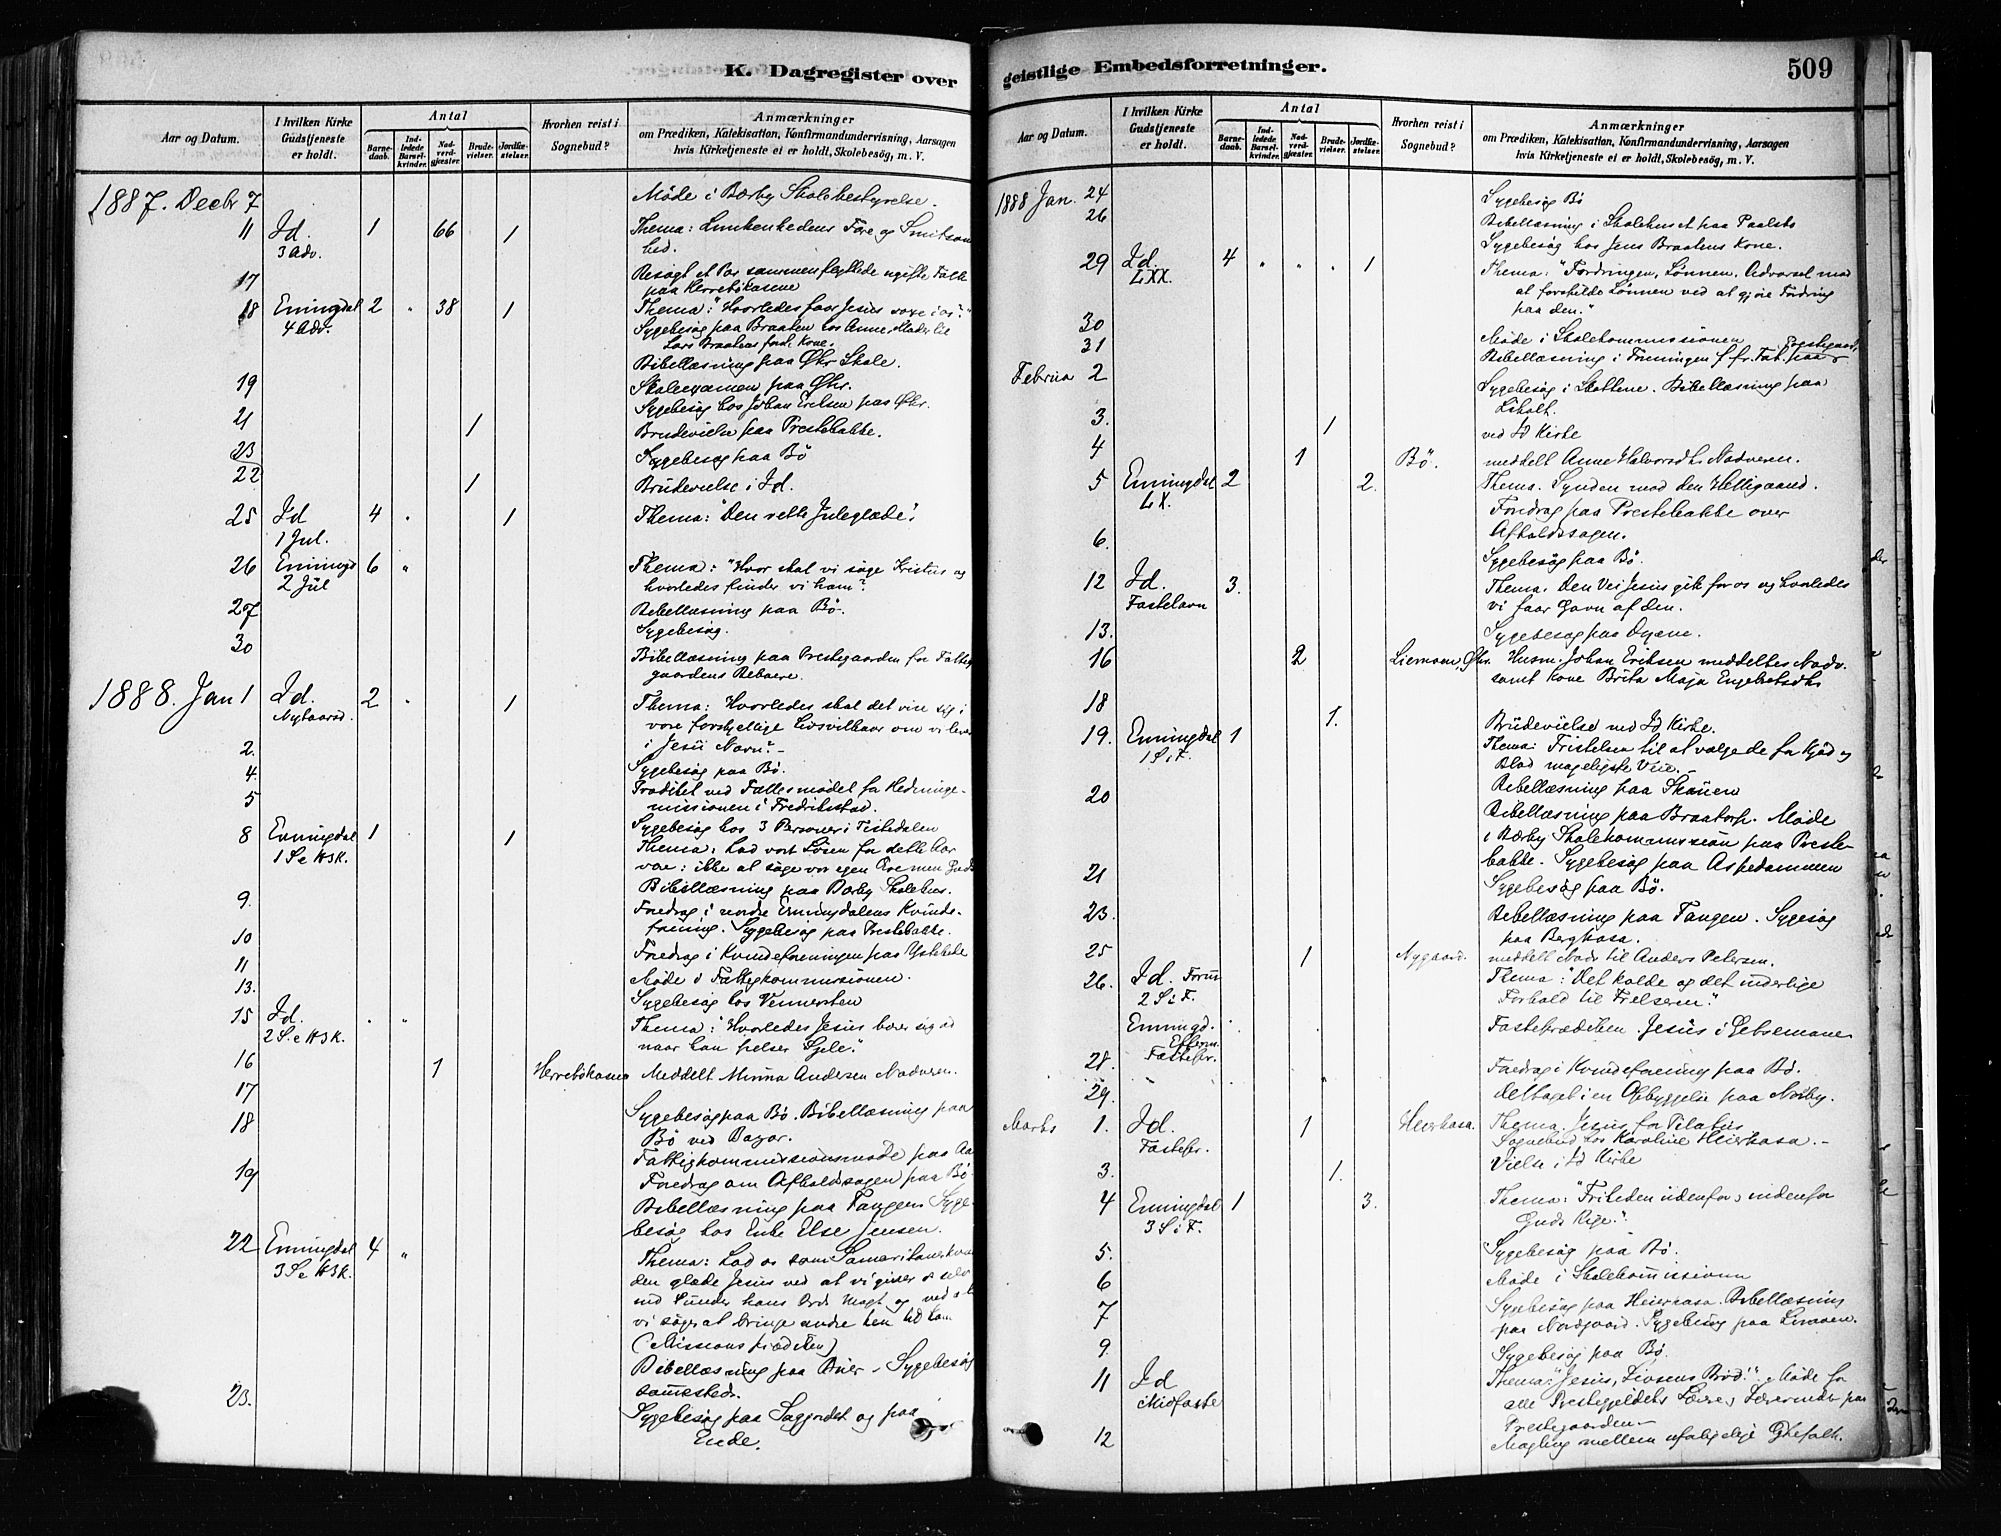 K. Dagregister over
Aar og Datum.
I hvilken Kirke Gudstjeneste er holdt.
Antal
Barnedaab.
Indledede Barselkvinder.
Nadverdgjæster.
Brudevielser.
Jordfæstelser.
Hvorhen reist i Sognebud?
Anmærkninger
om Prædiken, Katekisation, Konfirmandundervisning, Aarsagen
hvis Kirketjeneste ei er holdt, Skolebesøg, m. V.
1887. Decbr 7 Møde i Bærby Skolebestyrelse.
11 Id. 1 66 1 Thema: Lunkenhedens Fare og Smitsom
3 Adv. hed.
17 Besøgt et Par sammenflyttede ugifte Folk
paa Herrebøkasene
18 Enningdal 2 " 38 1 Thema: "Hvorledes faar Jesus voxe i os?"
4 Adv. Sygebesøg paa Braaten hos Anne
Lars Braatens Kone.
Bibellæsning paa Øhr Skole.
19 Skoleexamen paa Øhr.
Sygebesøg hos Johan Eriksen paa Øhr.
21 1 Brudevielse paa Prestebakke.
23 Sygebesøg paa Bø
22 1 Brudevielse i Id.
25 Id 4 " 1 Thema: "Den rette Juleglæde".
1 Jul.
26 Enningd 6 " Thema: "Hvor skal vi søge Kristus og
2 Jul hvorledes finder vi ham?"
27 Bibellæsning paa Bø.
Sygebesøg.
30 Bibellæsning paa Prestegaarden for Fattig
gaardens Beboere.
1888. Jan 1 Id. 2 " 1 Thema: Hvorledes skal det vise sig i
Nytaarsd. vore forskjellige Livsvilkaar om vi lever
i Jesu Navn?
2. Sygebesøg paa Bø.
4. Prædiket ved Fællesmødet for Hedninge-
5 missionen i Fredrikstad.
Sygebesøg hos 3 Personer i Tistedalen
8 Enningdal 1 1 Thema: Lad vort Løsen for dette Aar
1 S e H3K. være: ikke at søge vor egen Ære men Guds
Bibellæsning paa Bærby Skolehus.
9. Foredrag i nordre Enningdalens Kvinde-
forening. Sygebesøg paa Prestebakke.
10 Foredrag i Kvindeforeningen paa
11 Møde i Fattigkommissionen.
13. Sygebesøg hos
15 Id. " " Thema: "Hvorledes Jesus bærer sig ad
2 S. e H3K. naar han frelser Sjele."
16 1 Herrebøkasene Meddelt Minna Andersen Nadveren.
17
Sygebesøg paa Bø. Bibellæsning paa
18 Bø ved Bazar.
Fattigkommissionsmøde paa
19 Foredrag om Afholdssagen paa Bø
Bibellæsning paa Tangen. Syge-
besøg hos Enke Else Jensen.
22 Enningdal 4 " Thema: Lad os som Samaritanerkvin
3 S e H3K. den glæde Jesus ved at vi giver os selv
ind under hans Ords Magt og ved at
vi søger at bringe andre hen til ham
(Missionsprædiken)
Bibellæsning paa Sygebesøg
23. sammesteds.
Sygebesøg paa Sagjordet og paa
Ende.
geistlige Embedsforretninger.
509
Aar og Datum.
I hvilken Kirke Gudstjeneste er holdt.
Antal
Barnedaab.
Indledede Barselkvinder.
Nadverdgjæster.
Brudevielser.
Jordfæstelser.
Hvorhen reist i Sognebud?
Anmærkninger
om Prædiken, Katekisation, Konfirmandundervisning, Aarsagen
hvis Kirketjeneste ei er holdt, Skolebesøg, m. V.
1888 Jan. 24 Sygebesøg Bø
26 Bibellæsning i Skolehuset paa
Sygebesøg hos Jens Braatens Kone.
29 Id. 4 " " " 1 Thema: "Fordringen, Lønnen. Advarsel mod
LXX. at forspilde Lønnen ved at gjøre Fordring
paa den."
30 Møde i Skolekommissionen
31 Bibellæsning i Foreningen f. fr. Fat. paa Prestegaard.
Februa 2 Sygebesøg i Skottene. Bibellæsning paa
Liholt.
3. 1 ved Id Kirke
4 1 Bø. meddelt Anne Halvorsdtr Nadveren.
5 Enningdal 2 2. Thema. Synden mod den Helligaand.
LX. Foredrag paa Prestebakke over
6. Afholdssagen.
Sygebesøg paa Bø.
12 Id. 3. Thema. Den Vei Jesus gik for os og hvorledes
Fastelavn vi faar Gavn af den.
13. Sygebesøg paa
16 2 Liemoen, Øhr. Husm. Johan Eriksen meddeltes Nadv.
samt Kone Brita Maja Engebretsdtr
18 1. Brudevielse ved Id Kirke.
19. Enningdal 1 Thema: Fristelsen til at vælge de for Kjød og
1 S i F. Blod mageligste Veie.
20 Bibellæsning paa Skauen
Bibellæsning paa Braatorp. Møde
i Bærby Skolekommission paa Preste-
bakke. Sygebesøg paa Aspedammen
21 Sygebesøg paa Bø.
23. Bibellæsning paa Tangen. Sygesøg
paa Berghasa.
25 1 Nygaard. meddelt Nadv til Anders Petersen.
26. Id. Form Thema: "Det kolde og det inderlige
2 S i F. Forhold til Frelseren."
Enningd. Fasteprædiken. Jesus i Getsemane
Efterm.
28. Fastepr. Foredrag i Kvindeforening paa Bø.
29. deltaget i en Opbyggelse paa Norby.
Marts 1. Id. 1 Heierhasa. Thema. Jesus for Pilatus
Fastepr. Sognebud hos Karoline Heierhasa.
3. 1. Vielse i Id Kirke
4 Enningdal 1 3. Thema: "Friheden udenfor og indenfor
3 S i F. Guds Rige."
5. Sygebesøg paa Bø.
6 Møde i Skolekommissionen
7 Sygebesøg paa Heierhasa. Bibellæsning
paa Nordgaard. Sygebesøg paa Limoen.
9. Sygebesøg paa Bø.
11 Id Thema: "Jesus, Livsens Brød!" Møde for
Midfaste alle Prestegjeldets Lærere, Lærermøde paa
Prestegaarden.
12 Mægling mellem ufaligelige Ægtefolk.